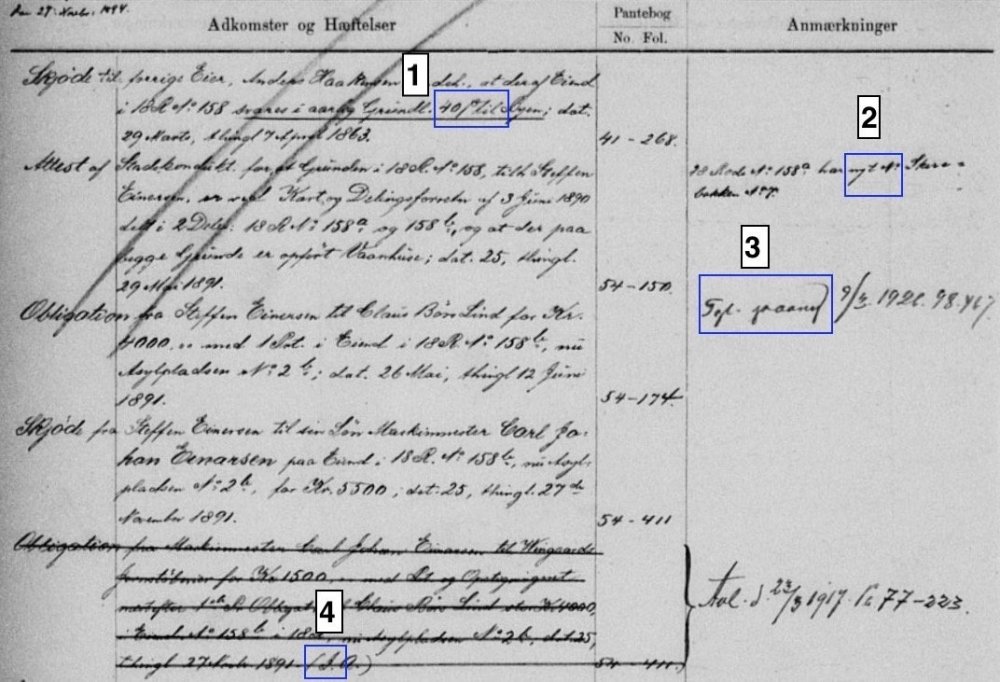 Den 27 Novbr. 1894.
Adkomster og Hæftelser
Pantebog
No. Fol.
Anmærkninger
Skjøde til forrige Eier, Anders Haakensen 1 deh., at der af Eiend
i 18 R. No 158 svares i aarlig Grundl. 40 til Byen; dat.
29 Marts, thingl 7 April 1863.
41 - 268.
2
Attest af Stadskondukt. for at Grunden i 18 R. No 158, tilh Steffen
Einersen, er ved Kart og Delingsforretn af 3 Juni 1890
delt i 2 Dele: 18 R No 158a og 158b, og at der paa
begge Grunde er opført Vaanhuse; dat. 25, thingl.
29 Mai 1891.
54 - 150.
18 Rode No 158a har nyt No
bakken No 7.
3
Obligation fra Steffen Einersen til Claus Børs Lind for Kr.
4000, med 1 Prt. i Eiend i 18 R. No 158b, nu
Asylpladsen No 2b; dat. 26 Mai, thingl 12 Juni
1891.
54 - 174.
1926. 98. 467.
Skjøde fra Steffen Einersen til sin Søn Maskinmester Carl Jo-
han Einarsen paa Eiend i 18 R. No 158b, nu Asyl-
pladsen No 2b, for Kr. 5500; dat. 25, thingl. 27de
November 1891.
54 - 411
Obligation fra Maskinmester Carl Johan Einarsen til Wingaards
for Kr 1500, med Prt og Opsigningsret
næstefter 1ste Pr Obligat. Claus Børs Lind stor Kr 4000,
i Eiend No 158b i 18 R, nu Asylpladsen No 2b, dat. 25,
thingl 27 Novbr 1891 (I. A.)
54 - 411.
4
Avl. d. 23/3 1917. Pb 77 - 223.